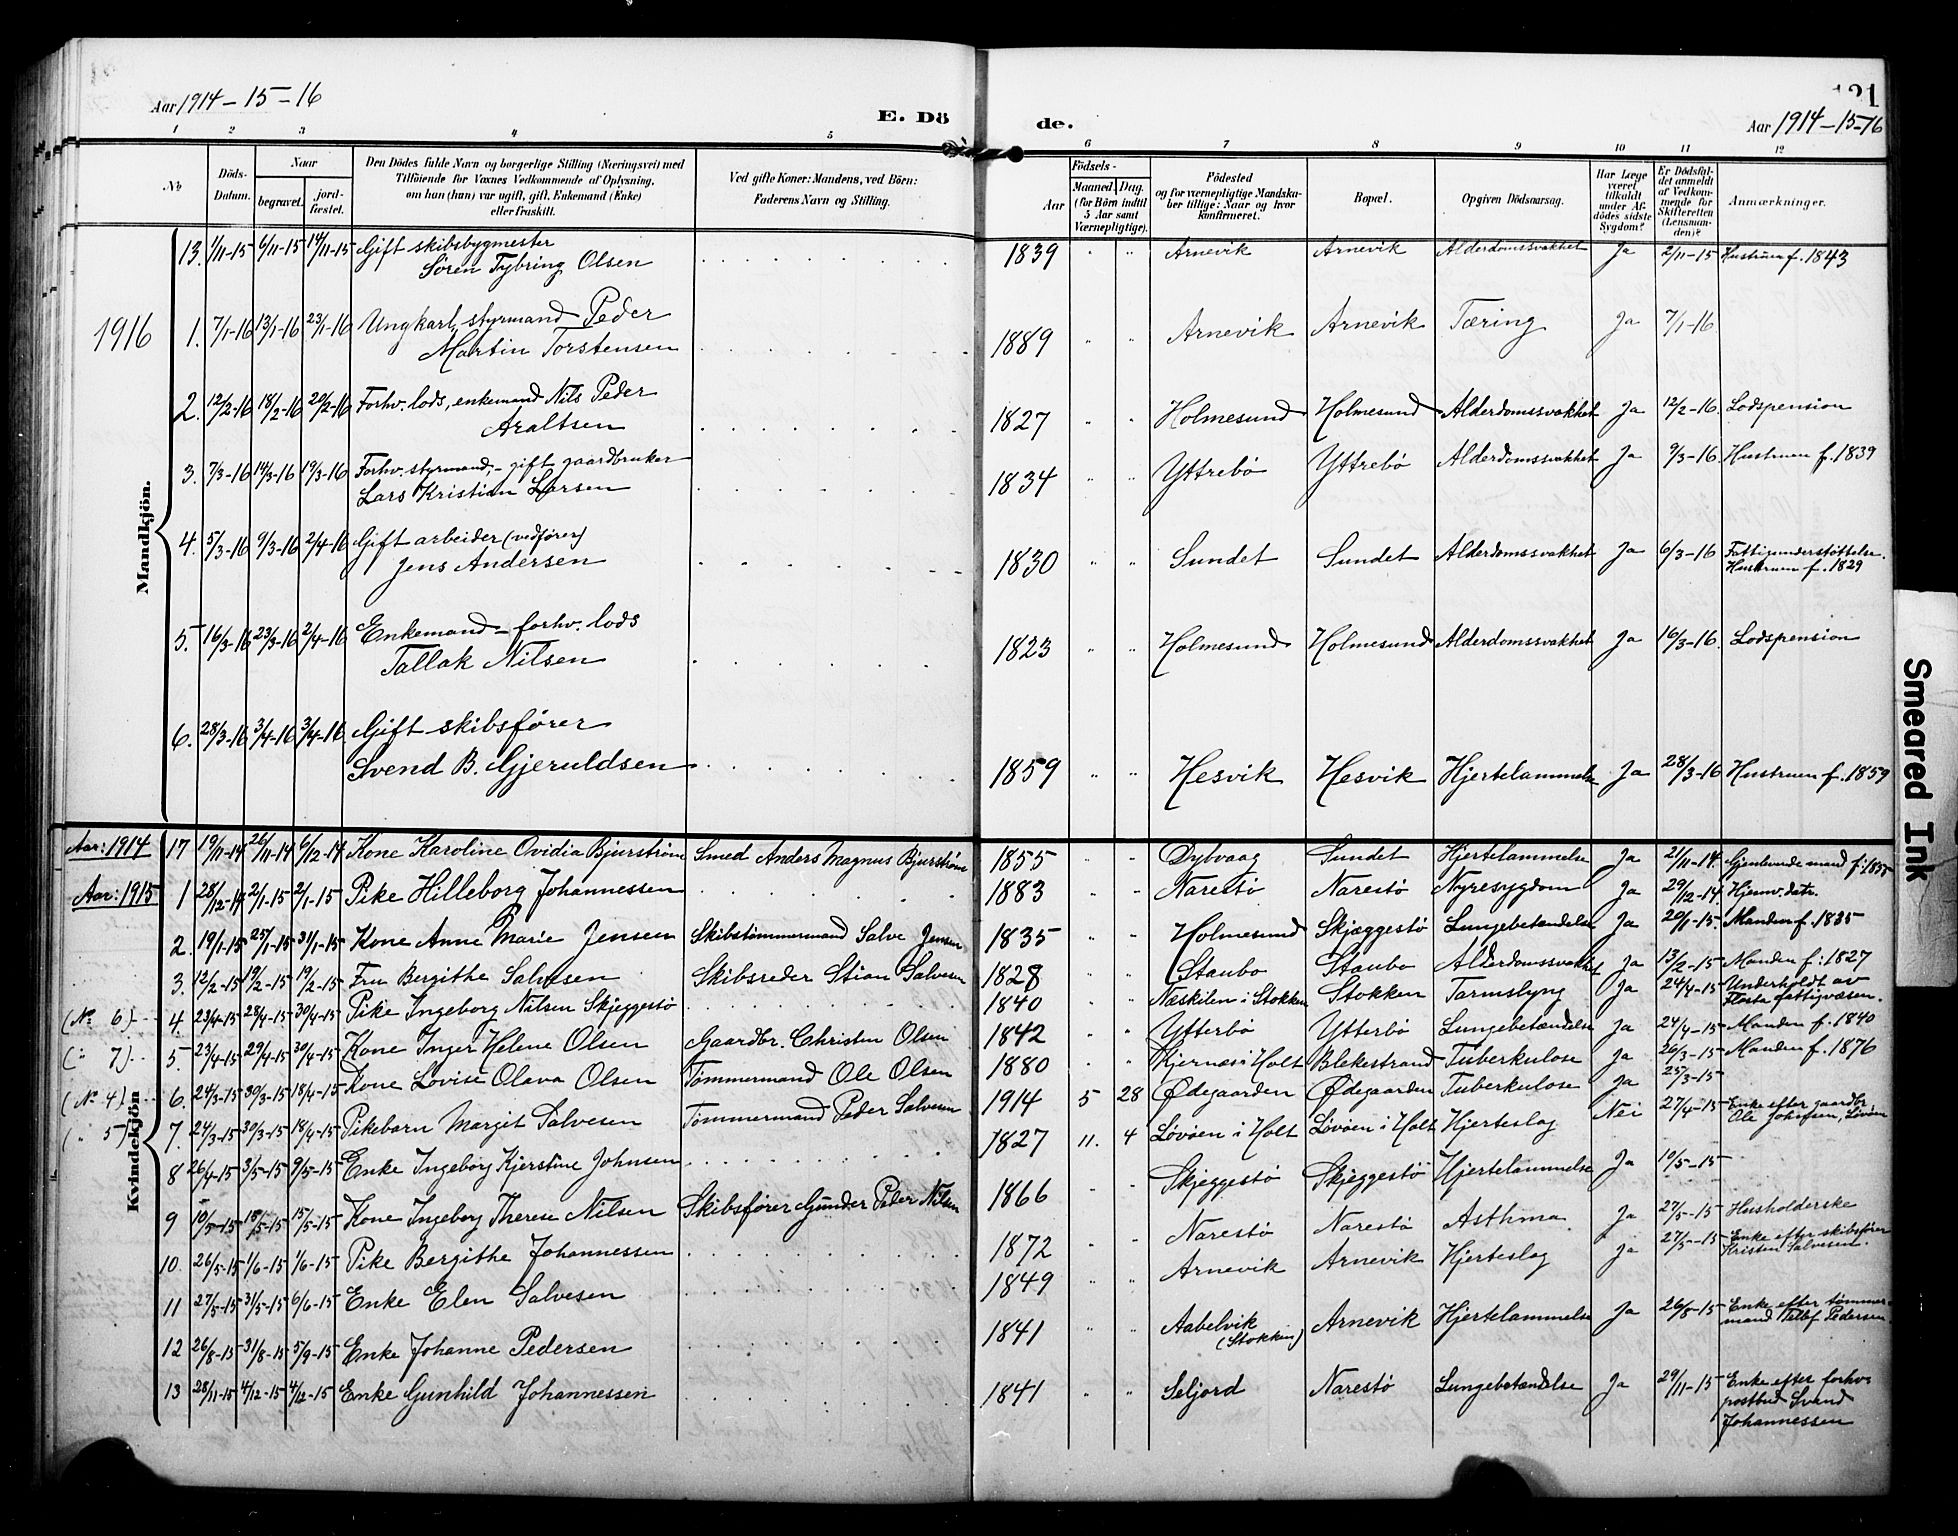 Aar 1914-15-16
E. Dö
de.
121
Aar 1914-15-16
1 2 3 4 5 6 7 8 9 10 11 12
No
Döds-Datum.
Naar
begravet.
jord-fæstet.
Den Dödes fulde Navn og borgerlige Stilling (Næringsvei) med
Tilföiende for Voxnes Vedkommende af Oplysning,
om han (hun) var ugift, gift, Enkemand (Enke)
eller fraskilt.
Ved gifte Koner: Mandens, ved Börn:
Faderens Navn og Stilling.
Födsels-
Aar
Maaned. Dag.
(for Börn indtil
5 Aar samt
Værnepligtige).
Födested
og for værnepligtige Mandska-
ber tillige: Naar og hvor
konfirmeret.
Bopæl.
Opgiven Dödsaarsag.
Har Læge
været
tilkaldt
under Af-
dödes sidste
Sygdom?
Er Dödsfal-
det anmeldt
af Vedkom-
mende for
Skifteretten
(Lensman-
den)?
Anmærkninger.
Mandkjön.
13. 1/11-15 6/11-15 14/11-15 Gift skibsbygmester
Sören Tybring Olsen 1839 " " Arnevik Arnevik Alderdomssvakhet Ja 2/11-15 Hustruen f. 1843
1916 1. 7/1-16 13/1-16 23/1-16 Ungkarl, styrmand Peder
Martin Torstensen 1889 " " Arnevik Arnevik Tæring Ja 7/1-16
2. 12/2-16 18/2-16 20/2-16 Forhv. lods, enkemand Nils Peder
Araltsen 1827 " " Holmesund Holmesund Alderdomssvakhet Ja 12/2-16. Lodspension
3. 7/3-16 14/3-16 19/3-16 Forhv. styrmand, - gift gaardbruker
Lars Kristian Larsen 1834 " " Yttrebö Yttrebö Alderdomssvakhet Ja 9/3-16. Hustruen f. 1839
4. 5/3-16 9/3-16 2/4-16 Gift arbeider (vedfører)
Jens Andersen 1830 " " Sundet Sundet Alderdomssvakhet Ja 6/3-16 Fattigunderstøttelse.
Hustruen f. 1829
5. 16/3-16 23/3-16 2/4-16 Enkemand - forhv. lods
Tallak Nilsen 1823 " " Holmesund Holmesund Alderdomssvakhet Ja 16/3-16. Lodspension
6. 28/3-16 3/4-16 3/4-16. Gift skibsfører
Svend B. Gjeruldsen 1859 " " Hesvik Hesvik Hjertelammelse Ja 28/3-16 Hustruen f. 1859
Kvindekjön
Aar: 1914 17 19/11-14 26/11-14 6/12-14 Kone Karoline Ovidia Bjurström Smed Anders Magnus Bjurström 1855 " " Dybvaag Sundet Hjertelammelse Ja 21/11-14. Gjenlevende mand f: 1855
Aar: 1915 1 28/12-14 2/1-15 2/1-15 Pike Hilleborg Johannessen 1883 " " Narestö Narestö Nyresygdom Ja 29/12-14. Hjemv. datr.
2. 19/1-15 25/1-15 31/1-15 Kone Anne Marie Jensen Skibstömmermand Salve Jensen 1835 " " Holmesund Skjæggestö Lungebetændelse Ja 20/1-15. Manden f. 1835
3. 12/2-15 19/2-15 19/2-15 Fru Bergithe Salvesen Skibsreder Stian Salvesen 1828 " " Staubo Staubo Alderdomssvakhet Ja 13/2-15 Manden f: 1827
(No 6) 4. 23/4-15 28/4-15 30/4-15 Pike Ingeborg Nilsen Skjeggestö 1840 Næskilen i Stokken Stokken Tarmslyng Ja 24/4-15 Underholdt av
Flosta fattigvæsen.
(" 7) 5. 23/4-15 29/4-15 30/4-15 Kone Inger Helene Olsen Gaardbr. Christen Olsen 1842 " Ytterbö Ytterbö Lungebetændelse Ja 24/4-15 Manden f. 1840
(No 4) 6. 24/3-15 30/3-15 18/4-15 Kone Lovise Olava Olsen Tömmermand Ole Olsen 1880 " Kjernæs i Holt Blekestrand Tuberkulose Ja 26/3-15 Manden f. 1876
(" 5) 7. 24/3-15 30/3-15 18/4-15 Pikebarn Margit Salvesen Tömmermand Peder Salvesen 1914 5 28 Ødegaarden Ødegaarden Tuberkulose Ja 25/3-15
8 26/4-15 3/5-15 9/5-15 Enke Ingeborg Kjerstine Johnsen 1827 11. 4 Lövöen i Holt Lövöen i Holt Hjerteslag Nei 27/4-15 Enke efter gaardbr.
Ole Johnsen, Lövöen
9 10/5-15 18/5-15 15/5-15 Kone Ingeborg Therese Nilsen Skibsfører Gunder Peder Nilsen 1866 " " Skjeggestö Skjeggestö Hjertelammelse Ja 10/5-15
10. 26/5-15 1/6-15 1/6-15 Pike Bergithe Johannessen 1872 " " Narestö Narestö Asthma Ja 27/5-15 Husholderske
11 27/5-15 31/5-15 6/6-15 Enke Elen Salvesen 1849 " " Arnevik Arnevik Hjerteslag Ja 27/5-15 Enke efter skibsfører
Kristen Salvesen.
12 26/8-15 31/8-15 5/9-15 Enke Johanne Pedersen 1841 " " Aabelvik
(Stokken) Arnevik Hjertelammelse Ja 26/8-15 Enke efter tömmer-
mand Pedersen
13 28/11-15 4/12-15 4/12-15 Enke Gunhild Johannessen 1841 " " Seljord Narestö Lungebetændelse Ja 29/11-15 Enke efter forhv.
postbud Svend
Johannessen
Smeared Ink